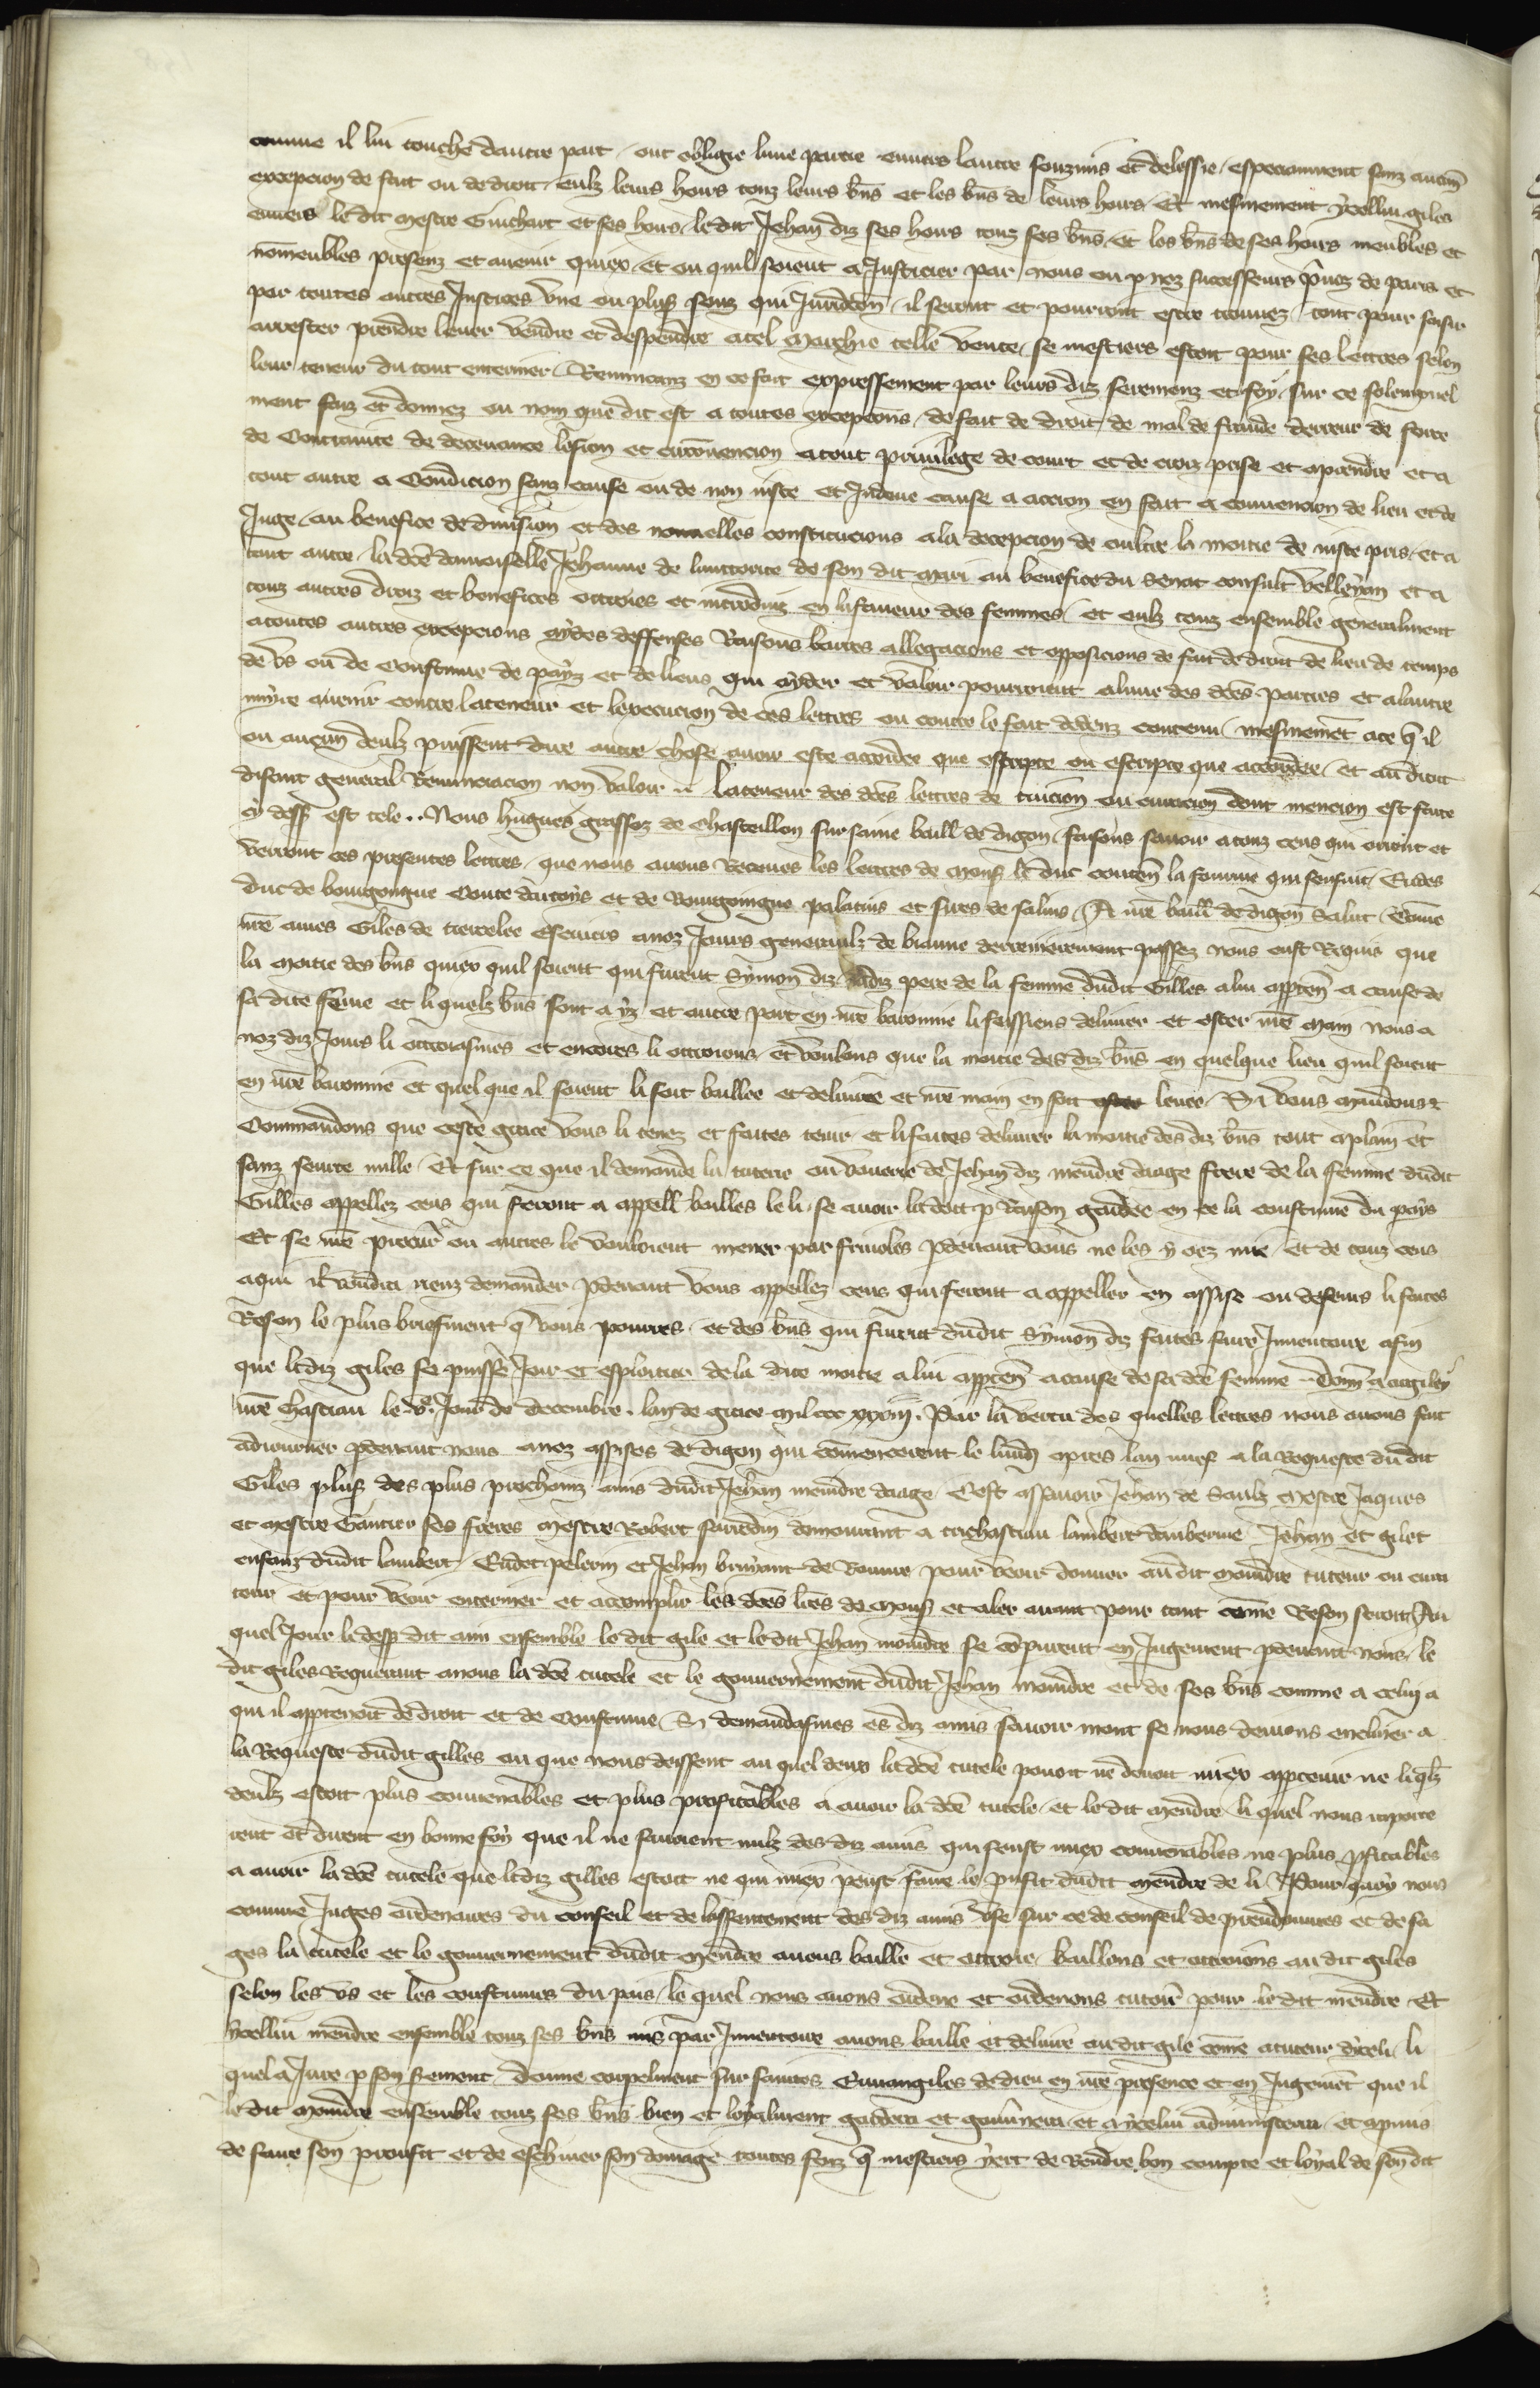 comme il lui touche dautre part, ont oblige lune partie enuers lautre souzmis et delessie, especiaument sanz aucune
excepcion de fait ou de droit, eulz leurs hoirs touz leurs bñs et les bñs de leurs hoirs. Et mesmement ycellui giles
enuers le dit mestre Guichart et ses hoirs, le dit Jehan diz ses hoirs touz ses bñs, et les bñs de ses hoirs meubles et
nõmeubles presenz et auenir quiex, et ou quil soient a Justicier par nous ou p noz successeurs p̃uoz de paris et
par toutes autres Justices vne ou plus̃ souz qui Jurid̃con, il seront et pourront estre trouuez, tout pour saisir
arrester prendre leuer vendre et despendre a tel marchie telle vente, se mestiers estoit pour ses lettres selon
leur teneur du tout enteriner. Renuncanz en ce fait expressement par leurs diz seremenz et foy, sur ce solempnel
ment faiz et donnez ou nom que dit est a toutes excepcions, de fait de droit, de mal de fraude derreur de force
de Contrainte de deceuance lesion et circõuencion a tout priuilege de court et de croiz prise et aprendre et a
tout autre a Condicion sanz cause ou de non iuste et Indeue cause a accion en fait a conuencion de lieu et de
Juge, au benefice de diuision et des nouuelles constitucions a la decepcion de oultre la moitie de iuste pris, et a
tout autre, la dc̃e damoiselle Jehanne de lauttorite de son dit mari au benefice du Senat consult Velleyan et a
touz autres droiz et benefices ottroies et introduiz en la faueur des femmes, et eulz touz ensemble generalment
a toutes autres excepcions aydes deffenses Raisons barres allegacions et opposicions de fait de droit de lieu de temps
de vs ou de Coustume de payz et de lieus qui ayder et valoir pourroient a lune des dc̃es parties et a lautre
nuyre auenir contre la teneur et lexecucion de ces lettres ou contre le fait dedenz contenu, mesmemẽt a ce q̃ il
ou aucun deulz puissent dire autre chose auoir este acordee que escripte ou escripte que acordee, et au droit
disant general Renunciacion non valoir .. la teneur des dc̃es lettres de tuicion ou curacion dont mencion est faite
cy dess̃ est tele .. Nous hugues grasses de Chasteillon sur saine baill̃ de digon, faisons sauoir a touz ceus qui orront et
verront ces presentes lettres, que nous auons Receues les lettres de mons̃ le duc conteñ la fourme qui sensuit, Eudes
duc de bourgoingne Conte dartoys et de Bourgoingne palatins et sires de salins, A nr̃e baill̃ de digon Salut, Cõme
nr̃e ames Giles de escuiers a noz Jours generaulz de biaune derrenierement passez nous eust Requis que
la moitie des bñs quiex quil soient qui furent Symon diz pere de la femme du dit Gilles a lui apparteñ a cause de
sa dite fẽme et li quelz bñs sont a yz et autre part en nr̃e baronnie li feissiens deliurer et oster nr̃e main nous a
noz diz Jours li ottroiasmes et encores li ottroions, et voulons que la moitie des diz bñs en quelque lieu quil soient
en nr̃e baronnie et quel que il soient li soit baillee et deliuree et nr̃e main en soit leuee. Si vous mandons et
Commandons que ceste grace vous li tenez et faites tenir, et li faites deliurer la moitie des diz bñs tout a plain et
sanz seurte nulle. Et sur ce que il demande la tuterie ou de Jehan diz mendre daage frere de la femme du dit
Gilles appellez ceus qui seront a appell̃ bailles le li se auoir le doit p Raison gardee en ce la coustume du pays
Et se nr̃e procur̃ ou autres le vouloient mener par friuoles pdeuant vous ne les y oez mie, et de touz ceus
a qui il voudra riens demander pdeuant vous appellez ceus qui seront a appeller en assise ou defenis li faites
Reson le plus briefment q̃ vous pourres, et des bñs qui furent du dit Symon diz faites faire Inuentoire afin
que lediz giles se puisse Joir et esploitier de la dite moitie a lui apparteñ a cause de sa dc̃e femme .. Donn̄ a
nr̃e chastiau le .v. Jour de decembre . lan de grace mil ccc xxxiii. Par la vertu des quelles lettres nous auons fait
adiourner pdeuant nous a noz assises de digon qui cõmencierent le lund̃ apres lan nuef a la Requeste du dit
Giles plus̃ des plus prochains amis du dit Jehan meindre daage. Cest assauoir Jehan de Saulz mestre Jaques
et mestre Gautier ses freres mestre Robert demourant a trichastiau lambert dauberiue, Jehan et gilet
enfanz du dit lambert, Eudot pelerin et Jehan bruyant de Beaune, pour veoir donner au dit meindre tuteur ou cura
teur et pour veoir enteriner et acomplir les dc̃es lr̃es de mons̃ et aler auant pour tant cõme Reson seroit, Au
quel Jour le dess̃ dit ami ensemble le dit gile et le dit Jehan meindre se cõparurent en Jugement pdeuant nous, le
dit giles Requerant a nous la dc̃e tutele et le gouuernement du dit Jehan meindre et de ses bñs comme a celuy a
qui il appartenoit de droit et de Coustume. Si demandasmes es diz amis sauoir mont se nous deuions encliner a
la Requeste du dit gilles ou que nous deissent au quel deux la dc̃e tutele pouoit ne deuoit miex appartenir ne li q̃lz
deulz estoit plus conuenables et plus proufitables a auoir la dc̃e tutele, et le dit mendre, li quel nous raporte
rent et dirent en bonne foy que il ne sauoient nulz des diz amis qui feust miex conuenables ne plus p̃fitables
a auoir la dc̃e tutele que lediz gilles estoit ne qui miex peust faire le p̃ufit du dit mendre de li. Pour quoy nous
comme Juges ordenaires du conseil et de lassentement des diz amis vse sur ce de conseil de preudommes et de sa
ges la tutele et le gouuernement du dit mendre auons baille et ottroie, baillons et ottroions au dit giles
selon les vs et les coustumes du pais, le quel nous auons ordene et ordenons tuteur pour le dit mendre. Et
ycellui mendre ensemble touz ses bñs mis par Inuentoire auons baille et deliure au dit gile cõme a tuteur diceli, li
quel a Jure p son serement, donne corpelment sur saintes Euuangiles de dieu en nr̃e presence et en Jugemẽt que il
le dit meindre ensemble touz ses bñs bien et loyalment gardera et gouũnera, et a ycelui administrera, et apmis
de faire son proufit et de eschiuer son domage toutes foiz q̃ mestiers yert de Rendre bon compte et loyal de son dit